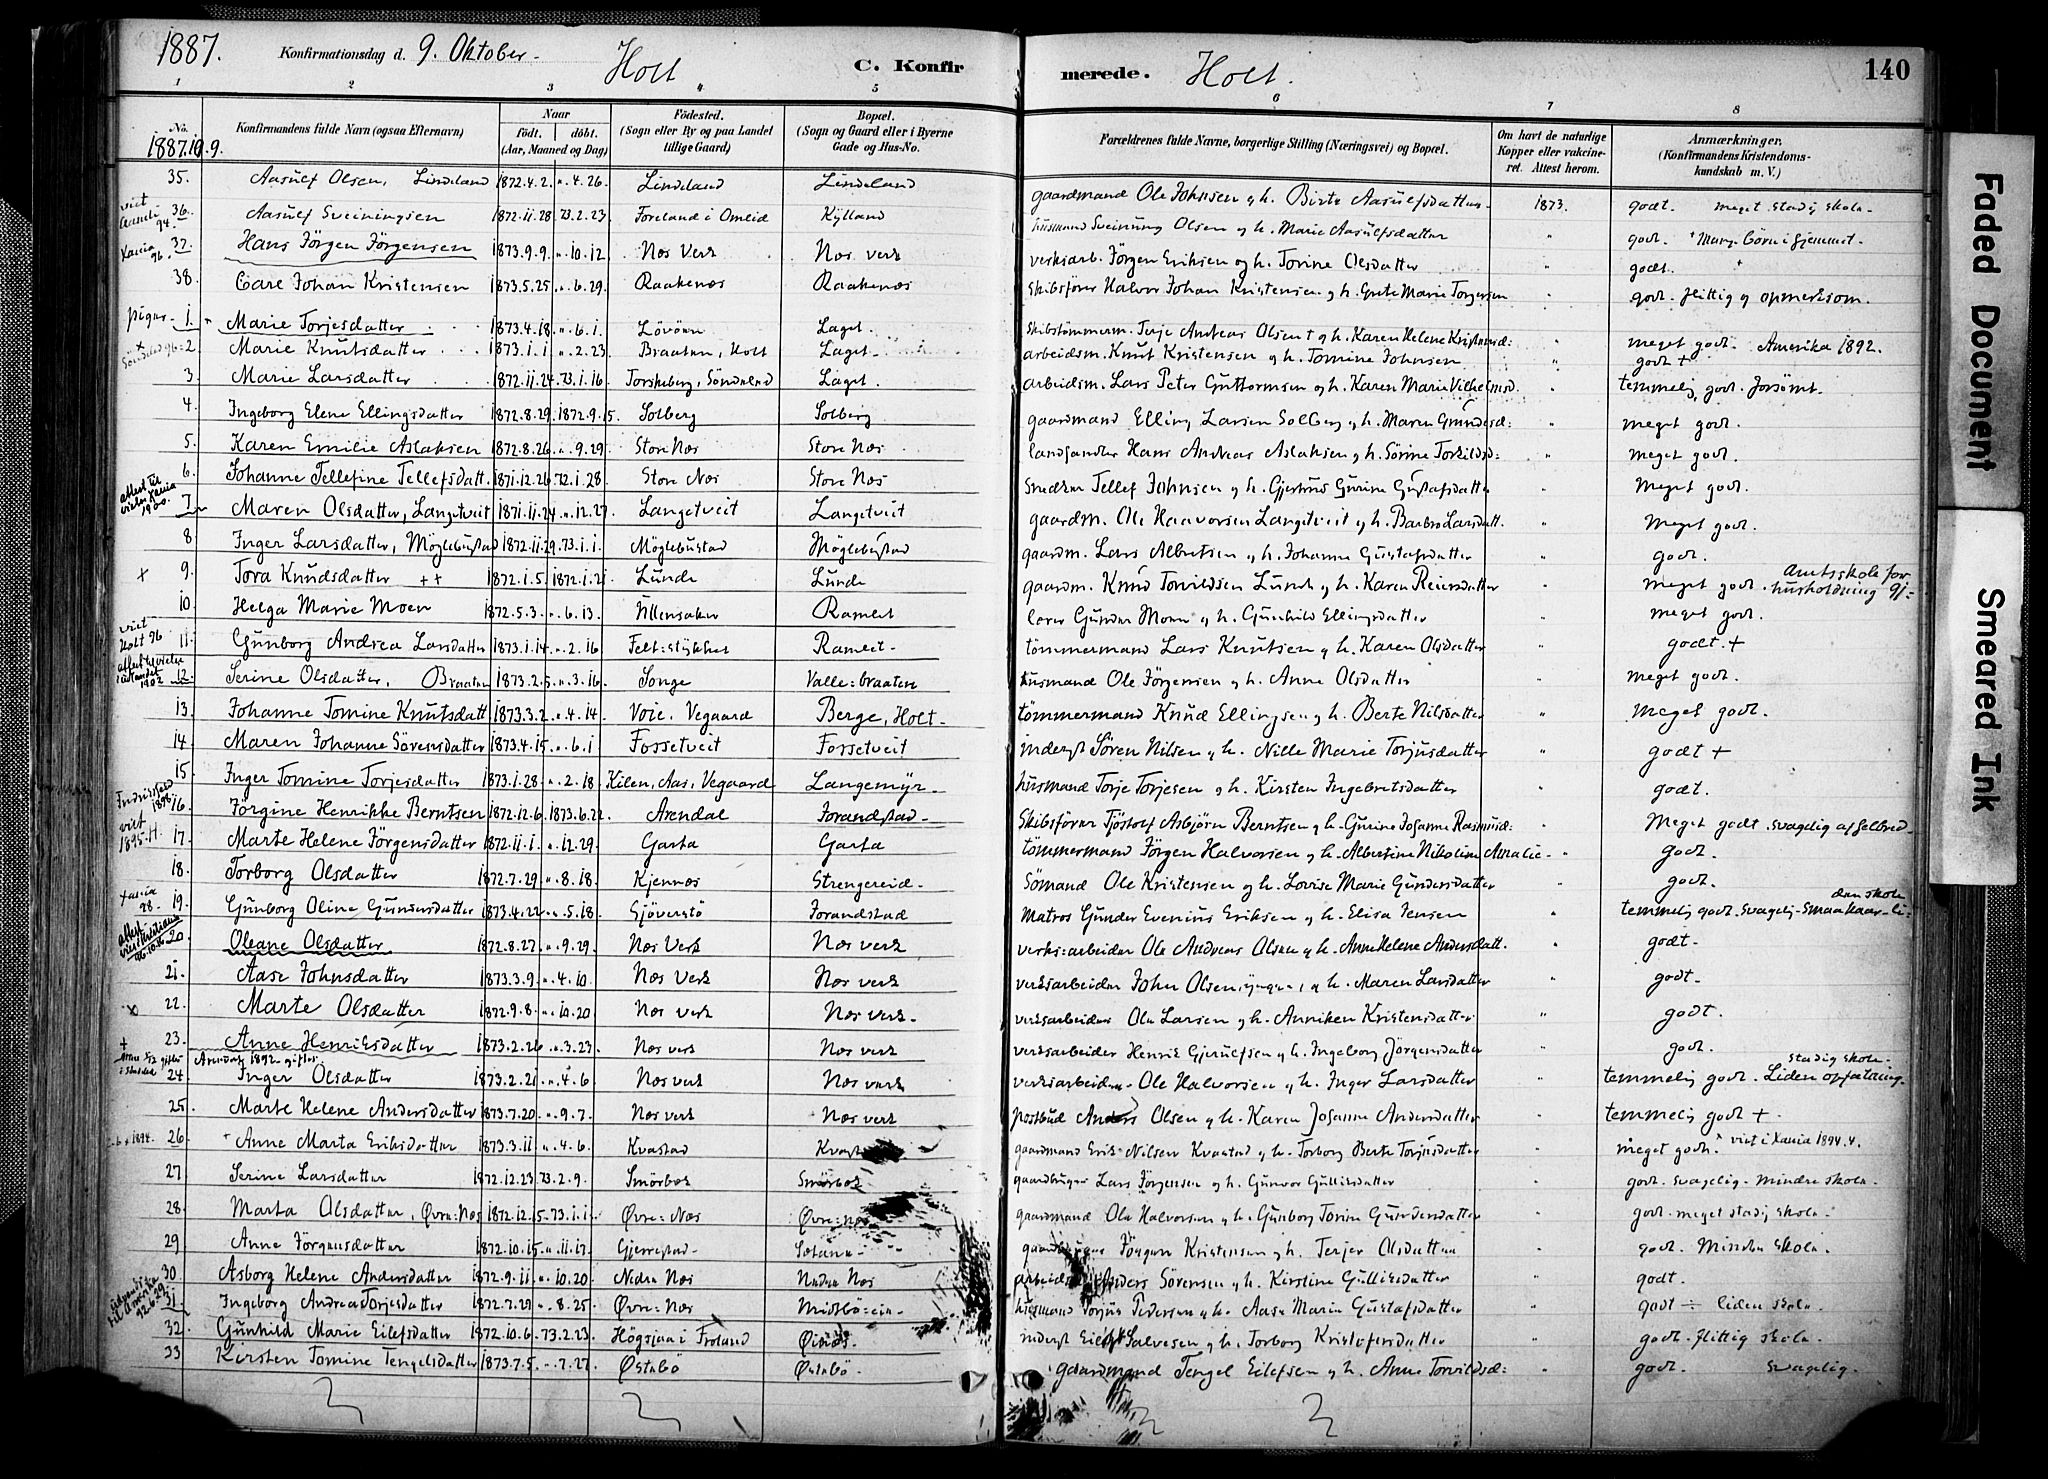 1887. Konfirmationsdag d. 9. Oktober - Holt C. Konfirmerede. Holt. 140
1 2 3 4 5 6 7 8
No. Konfirmandens fulde Navn (ogsaa Efternavn) Naar födt. döbt. (Aar, Maaned og Dag) Födested. (Sogn eller By og paa Landet tillige Gaard) Bopæl. (Sogn og Gaard eller i Byerne Gade og Hus-No. Forældrenes fulde Navne, borgerlige Stilling (Næringsvei) og Bopæl. Om havt de naturlige Kopper eller vakcineret. Attest herom. Anmærkninger. (Konfirmandens Kristendomskundskab m. V.)
1887.10.9.
35. Aasulf Olsen, Lindeland 1872.4.2. „.4.26. Lindeland Lindeland gaardmand Ole Johnsen og h. Birte Aasulfsdatter 1873. godt. meget stadig skole.
36. Aasulf Sveiningsen 1872.11.28 73.2.23 Foreland i Omlid Kylland husmand Sveinung Olsen og h. Marie Aasulfsdatter „ godt. Mange børn i hjemmet.
37. Hans Jörgen Jörgensen 1873.9.9. „.10.12 Nes Verk Nes verk verksarb. Jörgen Eriksen og h. Torine Olsdatter „ godt.
38. Carl Johan Kristensen 1873.5.25 „.6.29 Raakenes Raakenes Skibsfører Halvor Johan Kristensen og h. Grete Marie Torgersen „ godt. flittig og opmerksom.
piger. 1. Marie Torjesdatter 1873.4.18. „.6.1. Lövöen Laget. Skibstömmerm. Terje Andreas Olsen † og h. Karen Helene Kristensd: meget godt. Amerika 1892.
2. Marie Knutsdatter 1873.1.1 „.2.23 Braaten, Holt Laget. arbeidsm. Knut Kristensen og h. Tomine Johnsen „ godt +
3. Marie Larsdatter 1872.11.24. 73.1.16. Torskeberg, Söndeled Laget. arbeidsm. Lars Peter Guttormsen og h. Karen Marie Vilhelmsd. „ temmelig godt. forsømt.
4. Ingeborg Elene Ellingsdatter 1872.8.29. 1872.9.15. Solberg Solberg gaardmand Elling Larsen Solberg og h. Maren Gundersd: „ meget godt.
5. Karen Emilie Aslaksen 1872.8.26 „.9.29 Store Nes Store Nes landhandler Hans Andreas Aslaksen og h. Sörine Torkildsd: „ meget godt.
6. Johanne Tellefine Tellefsdatt. 1871.12.26 72.1.28. Store Nes Store Nes Snedker Tellef Johnsen og h. Gjertrud Gurine Gustafsdatter „ Meget godt.
7. Maren Olsdatter, Langetveit 1871.11.24 „.12.27. Langetveit Langetveit gaardm. Ole Haavorsen Langetveit og h. Barbro Larsdatt. „ Meget godt.
8. Inger Larsdatter, Möglebustad 1872.11.29. 73.1.1. Möglebustad Möglebustad gaardm. Lars Albretsen og h. Johanne Gustafsdatter „ godt.
+ 9. Tora Knudsdatter ++ 1872.1.5. 1872.1.21 Lunde Lunde gaardm. Knud Torvildsen Lunde og h. Karen Reiersdatter „ meget godt. Amtsskole for husholdning
10. Helga Marie Moen 1872.5.3. „.6.13. Ullensaker Ramlet Lærer Gunder Moen og h. Gunhild Ellingsdatter „ meget godt.
viet Holt 96 11. Gunborg Andrea Larsdatter 1873.1.14 „.2.16 Felt=stykket Ramlet. tömmermand Lars Knutsen og h. Karen Olsdatter „ godt. +
12. Serine Olsdatter, Braaten 1873.2.5. „.3.16. Songe Valle=braaten husmand Ole Jörgensen og h. Anne Olsdatter „ meget godt.
13. Johanne Tomine Knutsdatt 1873.3.2. „.4.14 Voie. Vegaard Berge, Holt- tömmermand Knud Ellingsen og h. Berte Nilsdatter „ Meget godt.
14. Maren Johanne Sörensdatter 1873.4.15. „.6.1 Fossetveit Fossetveit inderst Sören Nilsen og h. Nille Marie Torjusdatter „ godt +
15. Inger Tomine Torjesdatter 1873.1.28. „.2.18 Kilen, Aas, Vegaard Langemyr- husmand Torje Torjesen og h. Kirsten Ingebretsdatter „ godt.
16. Jörgine Henrikke Berntsen 1872.12.6. 1873.6.22. Arendal Forandstad- Skibsförer Tjöstolf Asbjörn Berntsen og h. Gurine Josanne Rasmusd: „ Meget godt. svagelig af helbred-
17. Marte Helene Jörgensdatter 1872.11.1. „.12.29. Garta Garta tömmermand Jörgen Halvorsen og h. Albertine Nikoline Amalie - „ godt.
18. Torborg Olsdatter 1872.7.29 „.8.18. Kjennes Strengereid- Sömand Ole Kristensen og h. Lovise Marie Gundersdatter „ godt.
19. Gunborg Oline Gundersdatter 1873.4.22 „.5.18. Gjöverstö Forandstad Matros Gunder Evenius Eriksen og h. Elisa Jensen „ temmelig godt. svagelig-
20. Oleane Olsdatter 1872.8.27. „.9.29. Nes Verk Nes verk verks=arbeider Ole Andreas Olsen og h. Anne Helene Andersdatt. „ godt-
21. Aase Johnsdatter 1873.3.9. „.4.10 Nes Verk Nes verk verksarbeider John Olsen og h. Maren Larsdatter „ godt-
x 22. Marte Olsdatter 1872.9.8. „.10.20 Nes verk Nes verk- verksarbeider Ole Larsen og h. Anniken Kristensdatter „ godt.
+ 23. Anne Henriksdatter 1873.2.26 „.3.23. Nes verk Nes verk verksarbeider Henrik Gjerulfsen og h. Ingeborg Jörgensdatter „ godt.
Arendal 1892 gifter
24. Inger Olsdatter 1873.2.21. „.4.6 Nes verk Nes verk verksarbeider Ole Halvorsen og h. Inger Larsdatter „ temmelig godt. stadig skole- Liden opfatning.
25. Marte Helene Andersdatter 1873.7.20. „.9.7. Nes verk Nes verk postbud Anders Olsen og h. Karen Josanne Andersdatter „ temmelig godt +
26 + Anne Marta Eriksdatter 1873.3.11 „.4.6. Kvastad gaardmand Erik Nilsen Kvastad og h. Torborg Berte Torjusdatter „ meget godt. viet i Xania 1894.4.
27 Serine Larsdatter 1872.12.23 73.2.9. Smörbek Smörbek gaardbruger Lars Jörgensen og h. Gunvor Gulliksdatter „ godt. svagelig- Mindre skole.
28 Marta Olsdatter, Øvre=Nes 1872.12.15. 73.1.1. Øvre=Nes Øvre=nes gaardmand Ole Halvorsen og h. Gunborg Torine Gundersdatter „ godt. meget stadig skole-
29 Anne Jörgensdatter 1872.10.15. „.11.17. Gjerrestad- Jörgen Kristensen og h. Terjer Olsdatter „ godt. Mindre skole.
30 Asborg Helene Andersdatter 1872.9.11. „.10.20. Nedre Nes Nedre Nes Anders Sörensen og h. Kirstine Gulliksdatter „ godt.
31 Ingeborg Andrea Torjesdatter 1872.7.29 „.8.25. Øvre=Nes husmand Torjus Pedersen og h. Aase Marie Gustafsdatter „ godt ÷ liden skole.
32 Gunhild Marie Eilefsdatter 1872.10.6. 73.2.23. Högsjaa i Froland inderst Eilef Salvesen og h. Torborg Kristofersdatter „ godt. flittig skole.
33 Kirsten Tomine Tengelsdatter 1873.7.5. „.7.27. Østebö Østebö. gaardmand Tengel Eilefsen og h. Anne Torvildsd: „ godt. svagelig.
Faded Document
Smeared Ink